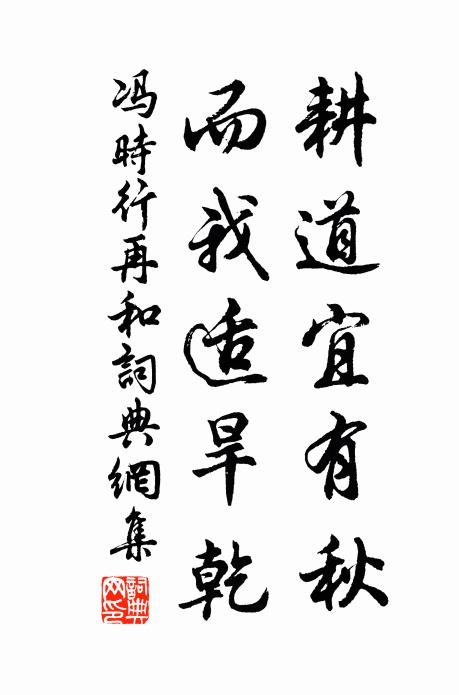 耕道宜有秋
而我适旱乾
冯時行再和詞典網集
詞典網印